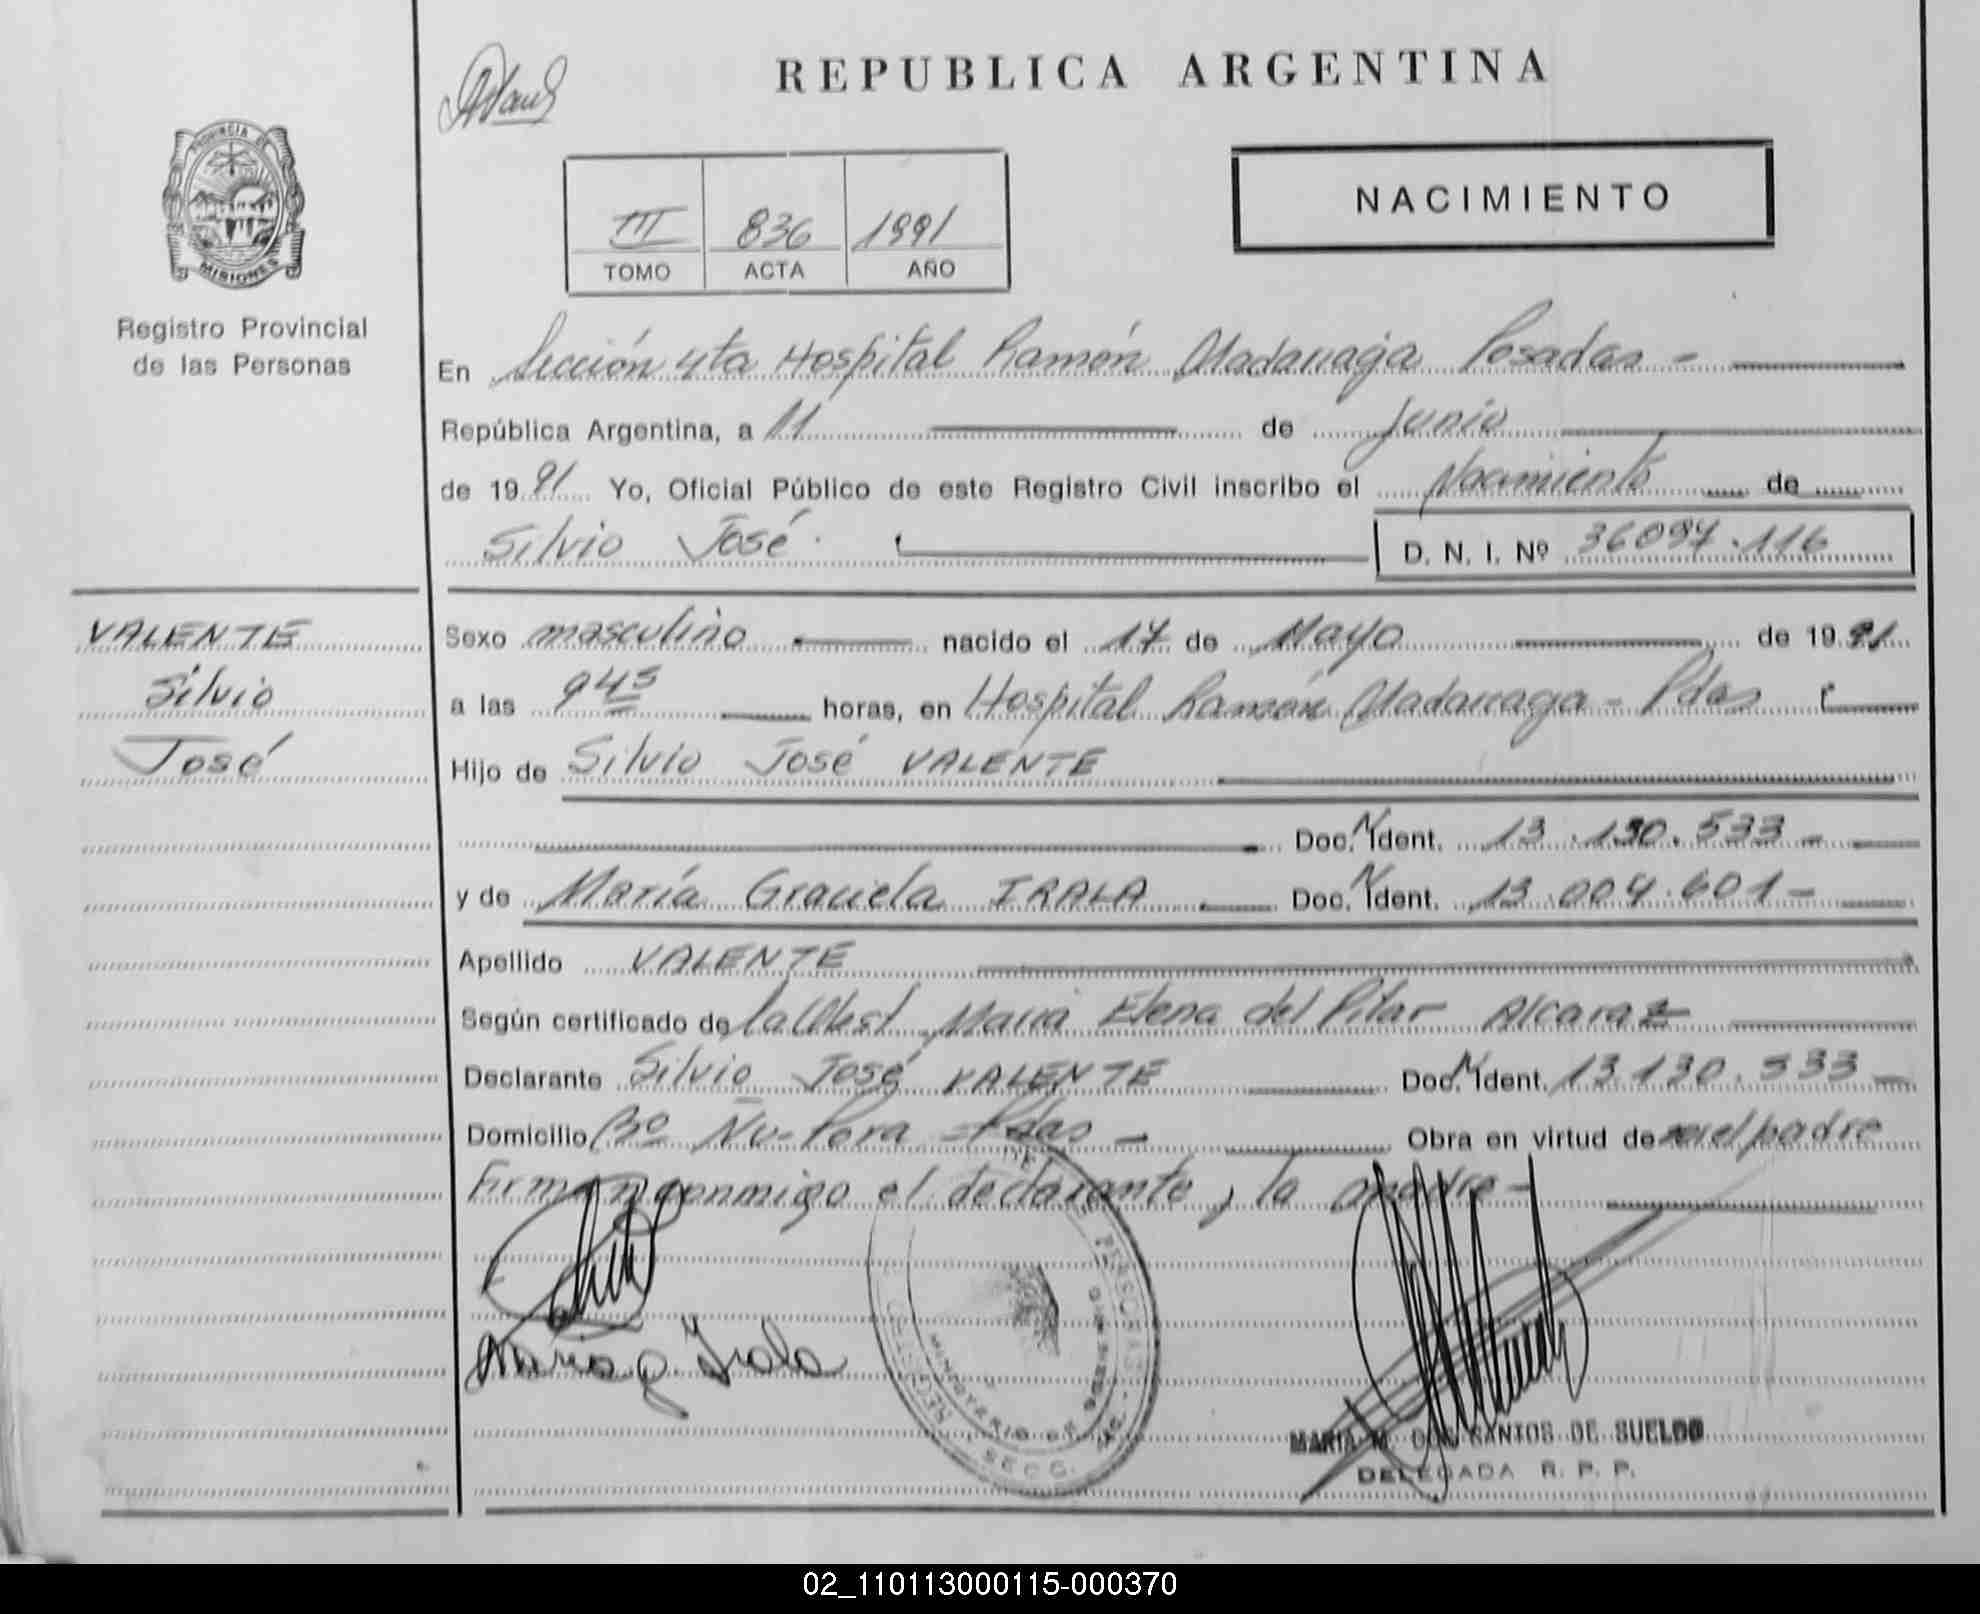 REPUBLICA ARGENTINA
PROVINCIA DE
MISIONES
Registro Provincial
de las Personas
III 836 1991
TOMO ACTA AÑO
NACIMIENTO
En Sección 4ta Hospital Ramón Madariaga Posadas -
República Argentina, a 11 de junio
de 1991 Yo, Oficial Público de este Registro Civil inscribo el Nacimiento de
Silvio José D. N. I. Nº 36097.116
VALENTE
Silvio
José
Sexo masculino nacido el 17 de Mayo de 1991
a las 9 45 horas, en Hospital Ramón Madariaga - Pdas
Hijo de Silvio José VALENTE
Doc. N Ident. 13.130.533 -
y de María Graciela IRALA Doc. N Ident. 13.004.601 -
Apellido VALENTE
Según certificado de la Obst María Elena del Pilar Alcaraz
Declarante Silvio José VALENTE Doc. N Ident. 13.130.533 -
Domicilio Bº Ñu-Pora - Pdas - Obra en virtud de el padre
Firman conmigo el declarante, la madre -
María G. Irala
MINISTERIO DE
SECC.
MARIA M. DOS SANTOS DE SUELDO
DELEGADA R. P. P.
02_110113000115-000370